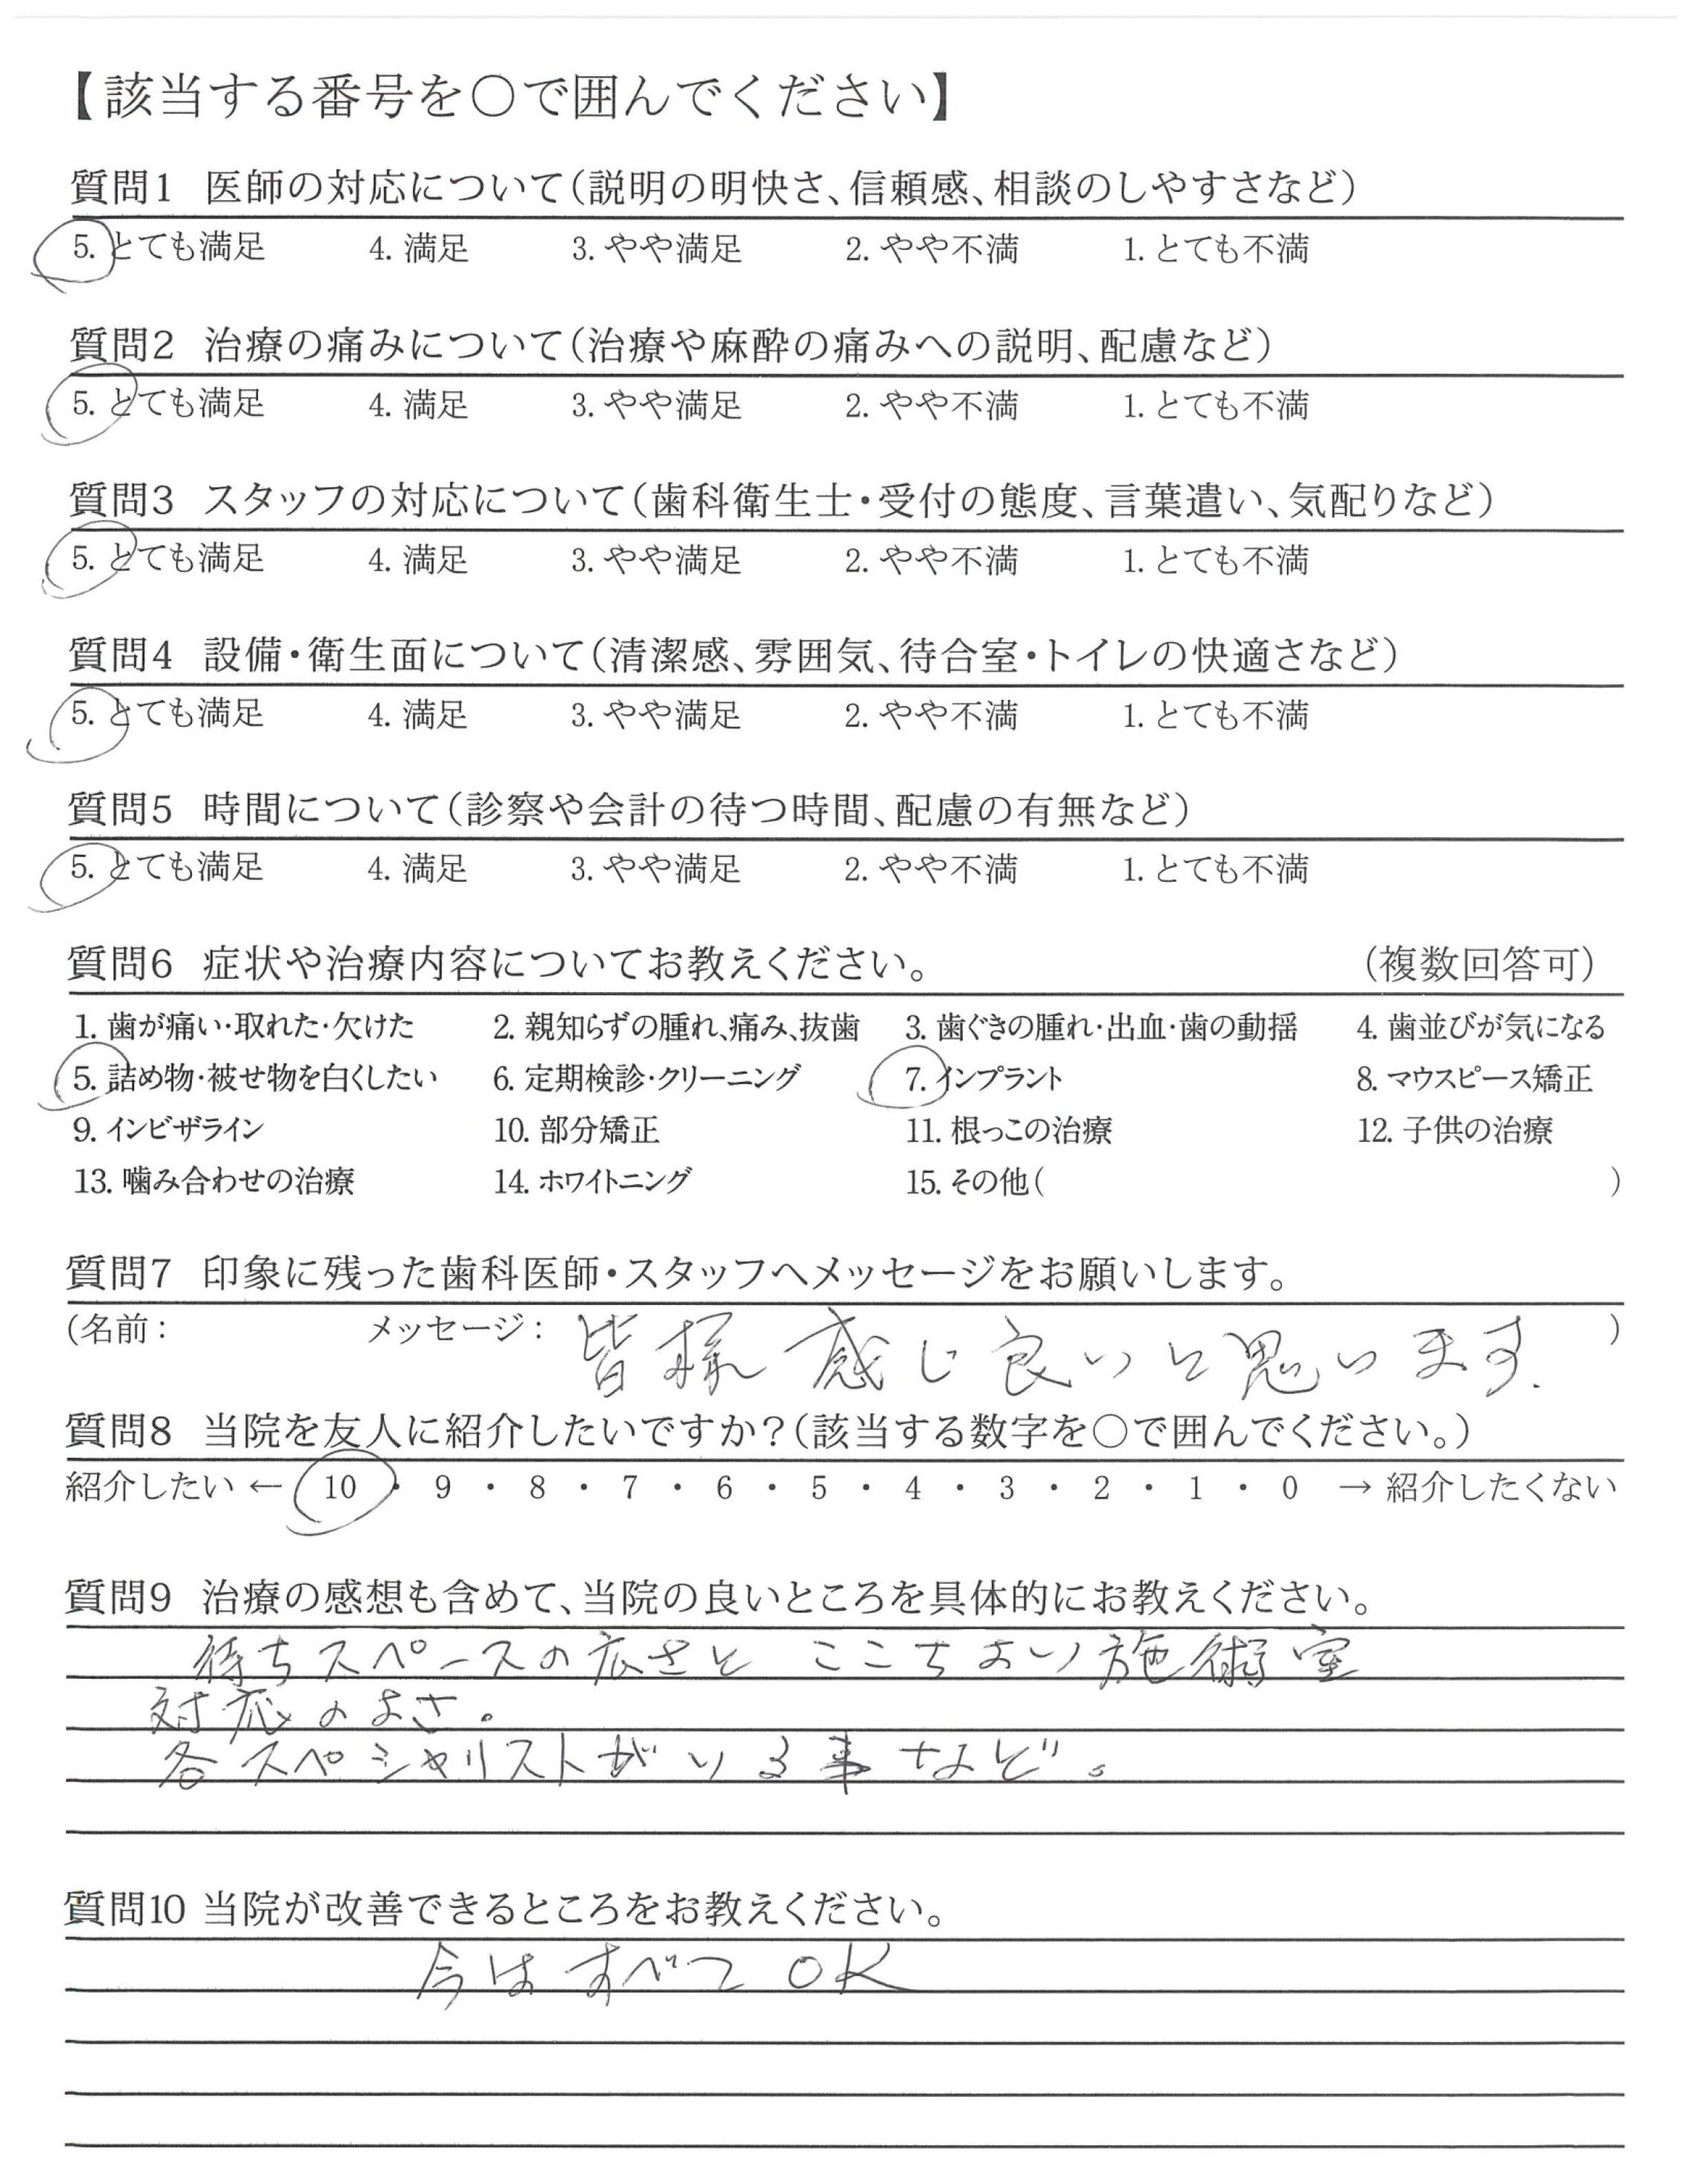 【該当する番号を○で囲んでください】
質問1 医師の対応について(説明の明快さ、信頼感、相談のしやすさなど)
5. とても満足 4. 満足 3. やや満足 2. やや不満 1. とても不満
質問2 治療の痛みについて(治療や麻酔の痛みへの説明、配慮など)
5. とても満足 4. 満足 3. やや満足 2. やや不満 1. とても不満
質問3 スタッフの対応について(歯科衛生士・受付の態度、言葉遣い、気配りなど)
5. とても満足 4. 満足 3. やや満足 2. やや不満 1. とても不満
質問4 設備・衛生面について(清潔感、雰囲気、待合室・トイレの快適さなど)
5. とても満足 4. 満足 3. やや満足 2. やや不満 1. とても不満
質問5 時間について(診察や会計の待つ時間、配慮の有無など)
5. とても満足 4. 満足 3. やや満足 2. やや不満 1. とても不満
質問6 症状や治療内容についてお教えください。 (複数回答可)
1. 歯が痛い・取れた・欠けた 2. 親知らずの腫れ、痛み、抜歯 3. 歯ぐきの腫れ・出血・歯の動揺 4. 歯並びが気になる
5. 詰め物・被せ物を白くしたい 6. 定期検診・クリーニング 7. インプラント 8. マウスピース矯正
9. インビザライン 10. 部分矯正 11. 根っこの治療 12. 子供の治療
13. 噛み合わせの治療 14. ホワイトニング 15. その他( )
質問7 印象に残った歯科医師・スタッフへメッセージをお願いします。
(名前: メッセージ: 皆様 感じ良いと思います. )
質問8 当院を友人に紹介したいですか?(該当する数字を○で囲んでください。)
紹介したい ← 10 ・ 9 ・ 8 ・ 7 ・ 6 ・ 5 ・ 4 ・ 3 ・ 2 ・ 1 ・ 0 → 紹介したくない
質問9 治療の感想も含めて、当院の良いところを具体的にお教えください。
待ちスペースの広さと ここちよい施術室
対応のよさ。
各スペシャリストがいる事などㅤ。
質問10 当院が改善できるところをお教えください。
今はすべてOK